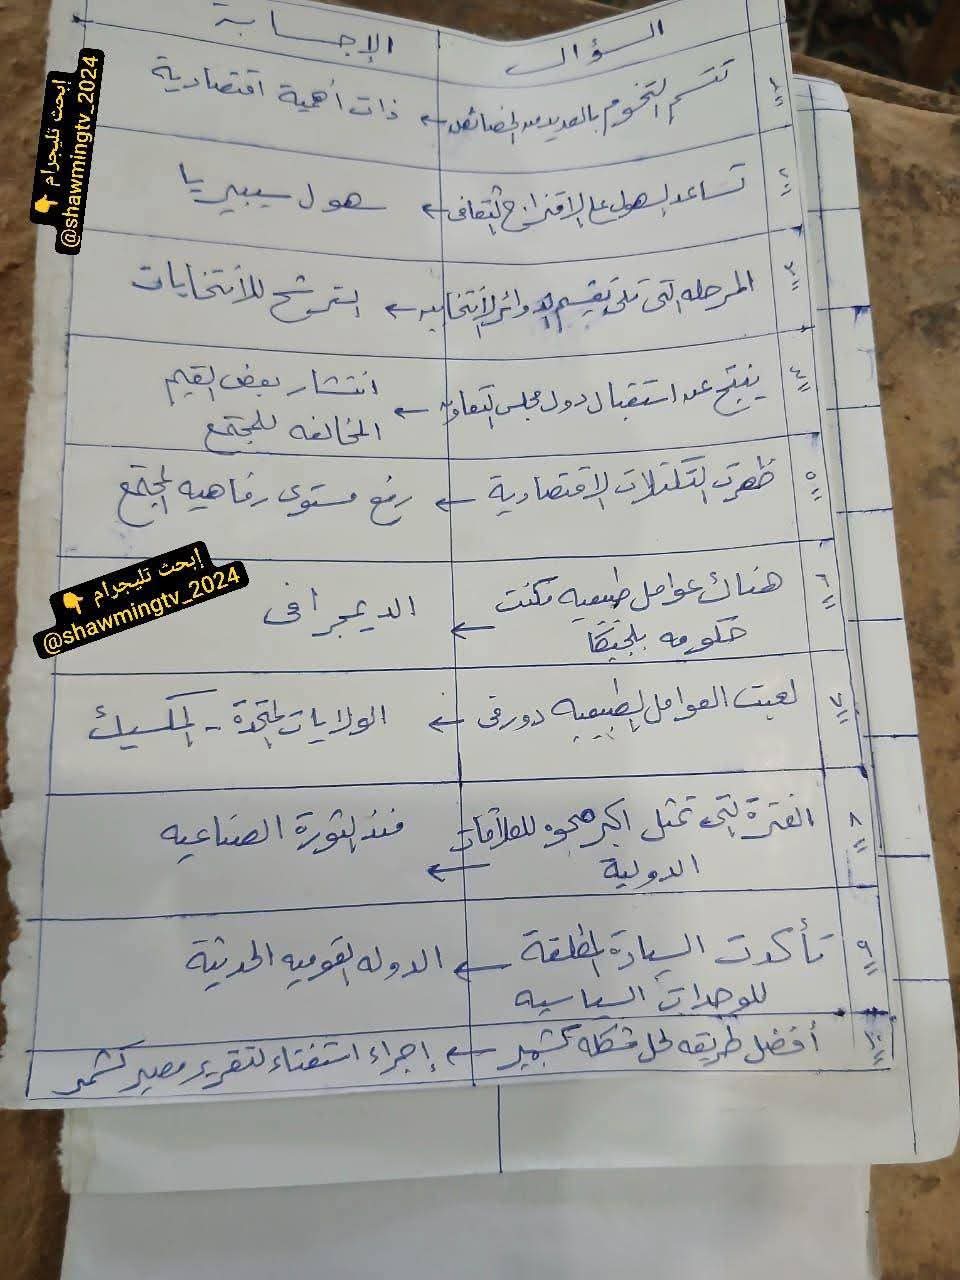 السؤال
الإجابة
١
تتسم التخوم بالعديد من الخصائص ← ذات أهمية اقتصادية
٢
تساعد السهول على الاقتراح الثقافى ← هول سيبيريا
٣
المرحله التى تلى تقسيم الدوائر الأنتخابيه ← الترشح للأنتخابات
٤
ينتج عن استقبال دول مجلس التعاون ← انتشار بعض القيم
المخالفه للمجتمع
٥
ظهرت التكتلات الاقتصادية ← رفع مستوى رفاهيه المجتمع
٦
هناك عوامل طبيعيه مكنت
حكومه بلجيكا ← الديمجرافى
٧
لعبت العوامل الطبيعيه دور فى ← الولايات المتحدة - المكسيك
٨
الفترة التى تمثل اكبر للعلاقات
الدولية ← منذ الثورة الصناعيه
٩
تأكدت السيادة المطلقة ← الدوله القوميه الحديثة
للوحدات السياسيه
١٠
أفضل طريقه لحل مشكله كشمير ← إجراء استفتاء لتقرير مصير كشمير
إبحث تليجرام 👇
@shawmingtv_2024
إبحث تليجرام 👇
@shawmingtv_2024